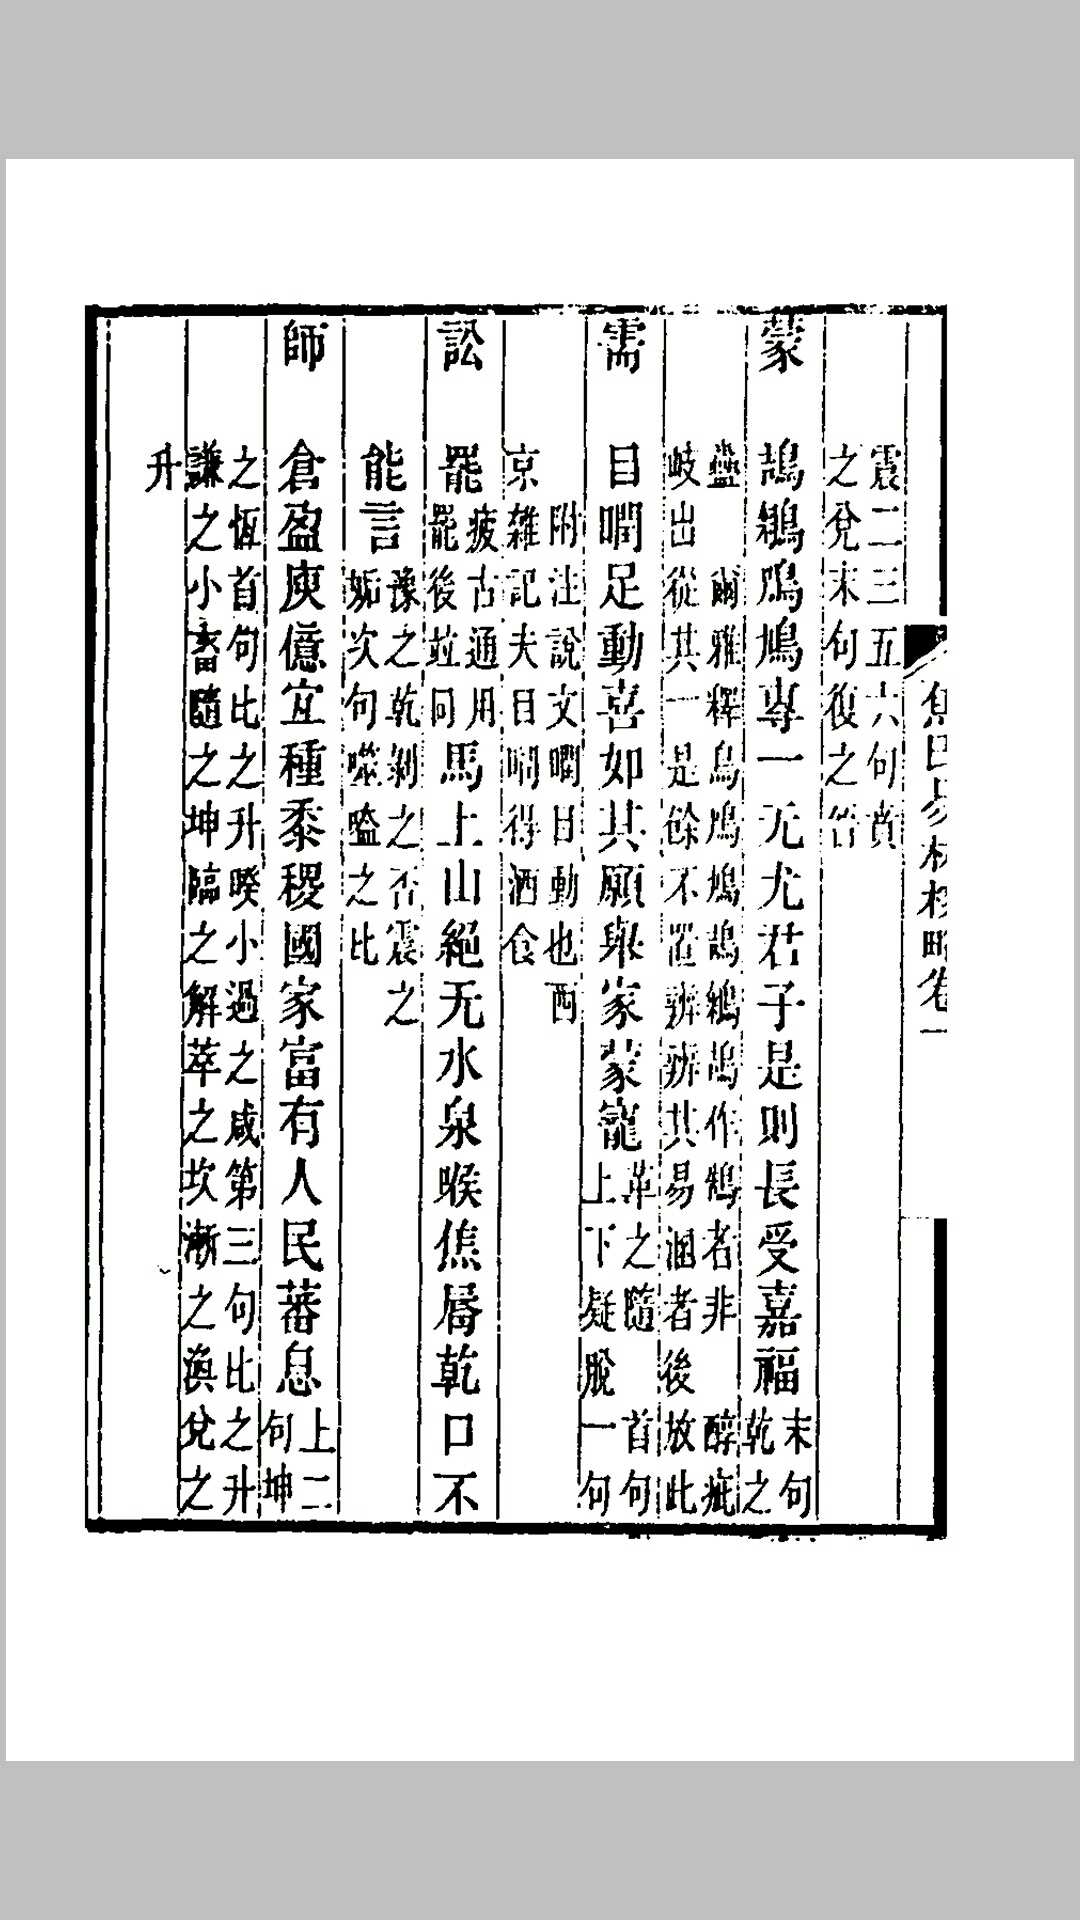 焦氏易林校略卷一
震二三五六句賁
之兌末句復之
蒙　鴶鵴鳲鳩專一无尤君子是則長受嘉福末句乾之
蠱　爾雅釋鳥鳲鳩鴶鵴鴶作鵠者非　醇疵
岐出從其一是餘不置辨辨其易溷者後放此
需　目瞤足動喜如其願舉家蒙寵革之隨　首句上下疑脫一句
附注說文瞤目動也西
京雜記夫目瞤得酒食
訟　罷疲古通用罷後竝同馬上山絕无水泉喉焦脣乾口不
能言豫之乾剝之否震之姤次句噬嗑之比
師　倉盈庾億宜種黍稷國家富有人民蕃息上二句坤
之恆首句比之升睽小過之咸第三句比之升
謙之小畜隨之坤臨之解萃之坎漸之渙兌之
升